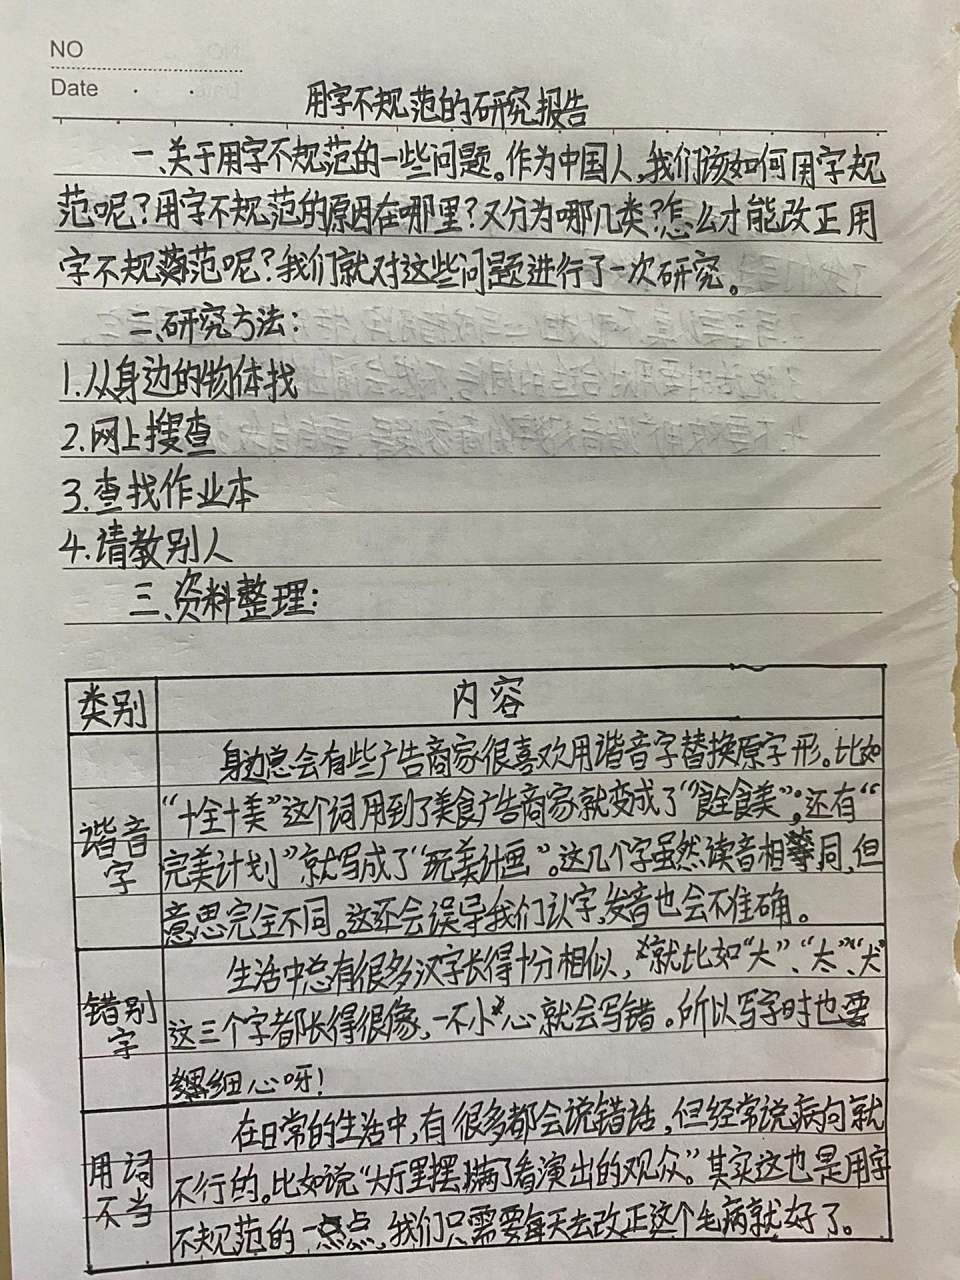 NO
Date
用字不规范的研究报告
一、关于用字不规范的一些问题。作为中国人,我们该如何用字规
范呢?用字不规范的原因在哪里?又分为哪几类?怎么才能改正用
字不规范呢?我们就对这些问题进行了一次研究。
二、研究方法:
1.从身边的物体找
2.网上搜查
3.查找作业本
4.请教别人
三、资料整理:
类别 内容
身边总会有些广告商家很喜欢用谐音字替换原字形。比如
“十全十美”这个词用到了美食广告商家就变成了“食全食美”;还有“
谐音字
完美计划”就写成了“玩美计画”。这几个字虽然读音相同,但
意思完全不同。这还会误导我们认字,发音也会不准确。
生活中总有很多汉字长得十分相似,就比如“大”、“太”“犬”
错别字
这三个字都长得很像,一不小心就会写错。所以写字时也要
细心呀!
在日常的生活中,有很多都会说错话,但经常说病句就
用词不当
不行的。比如说“大厅里摆满了看演出的观众。”其实这也是用字
不规范的一点,我们只需要每天去改正这个毛病就好了。